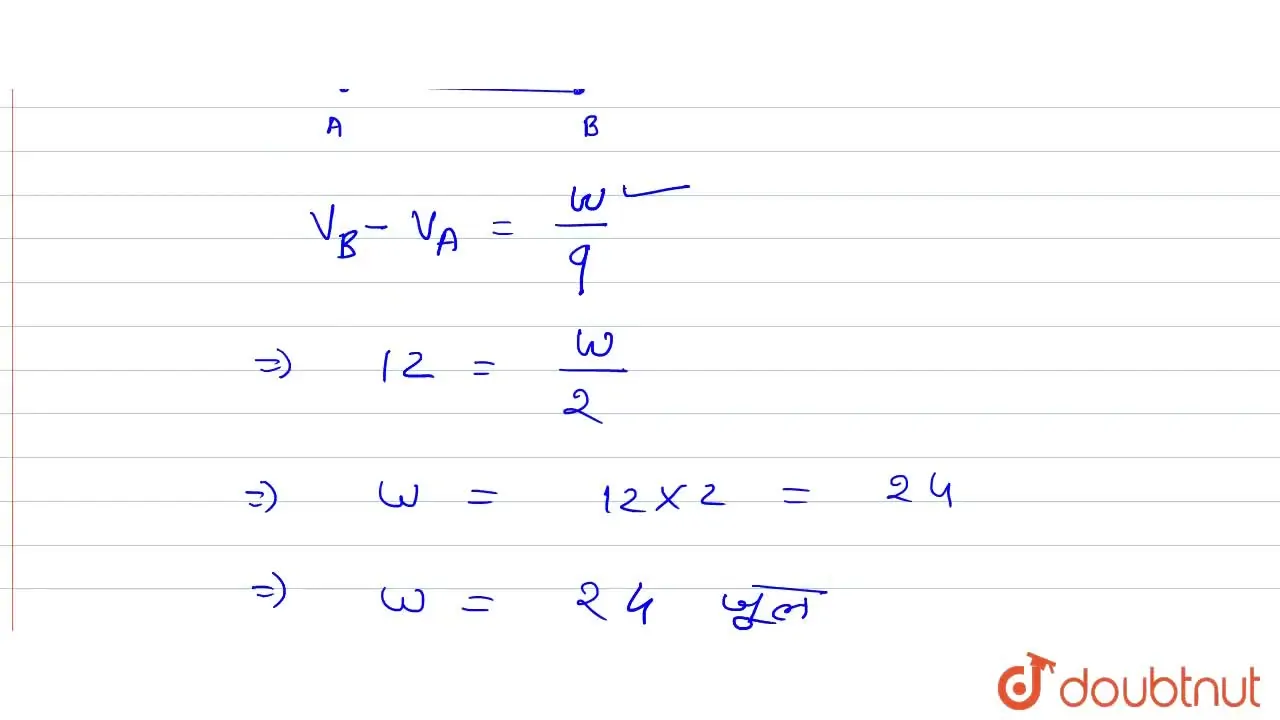 A B
V_B - V_A = W/q
⇒ 12 = W/2
⇒ W = 12 × 2 = 24
⇒ W = 24 जूल
doubtnut